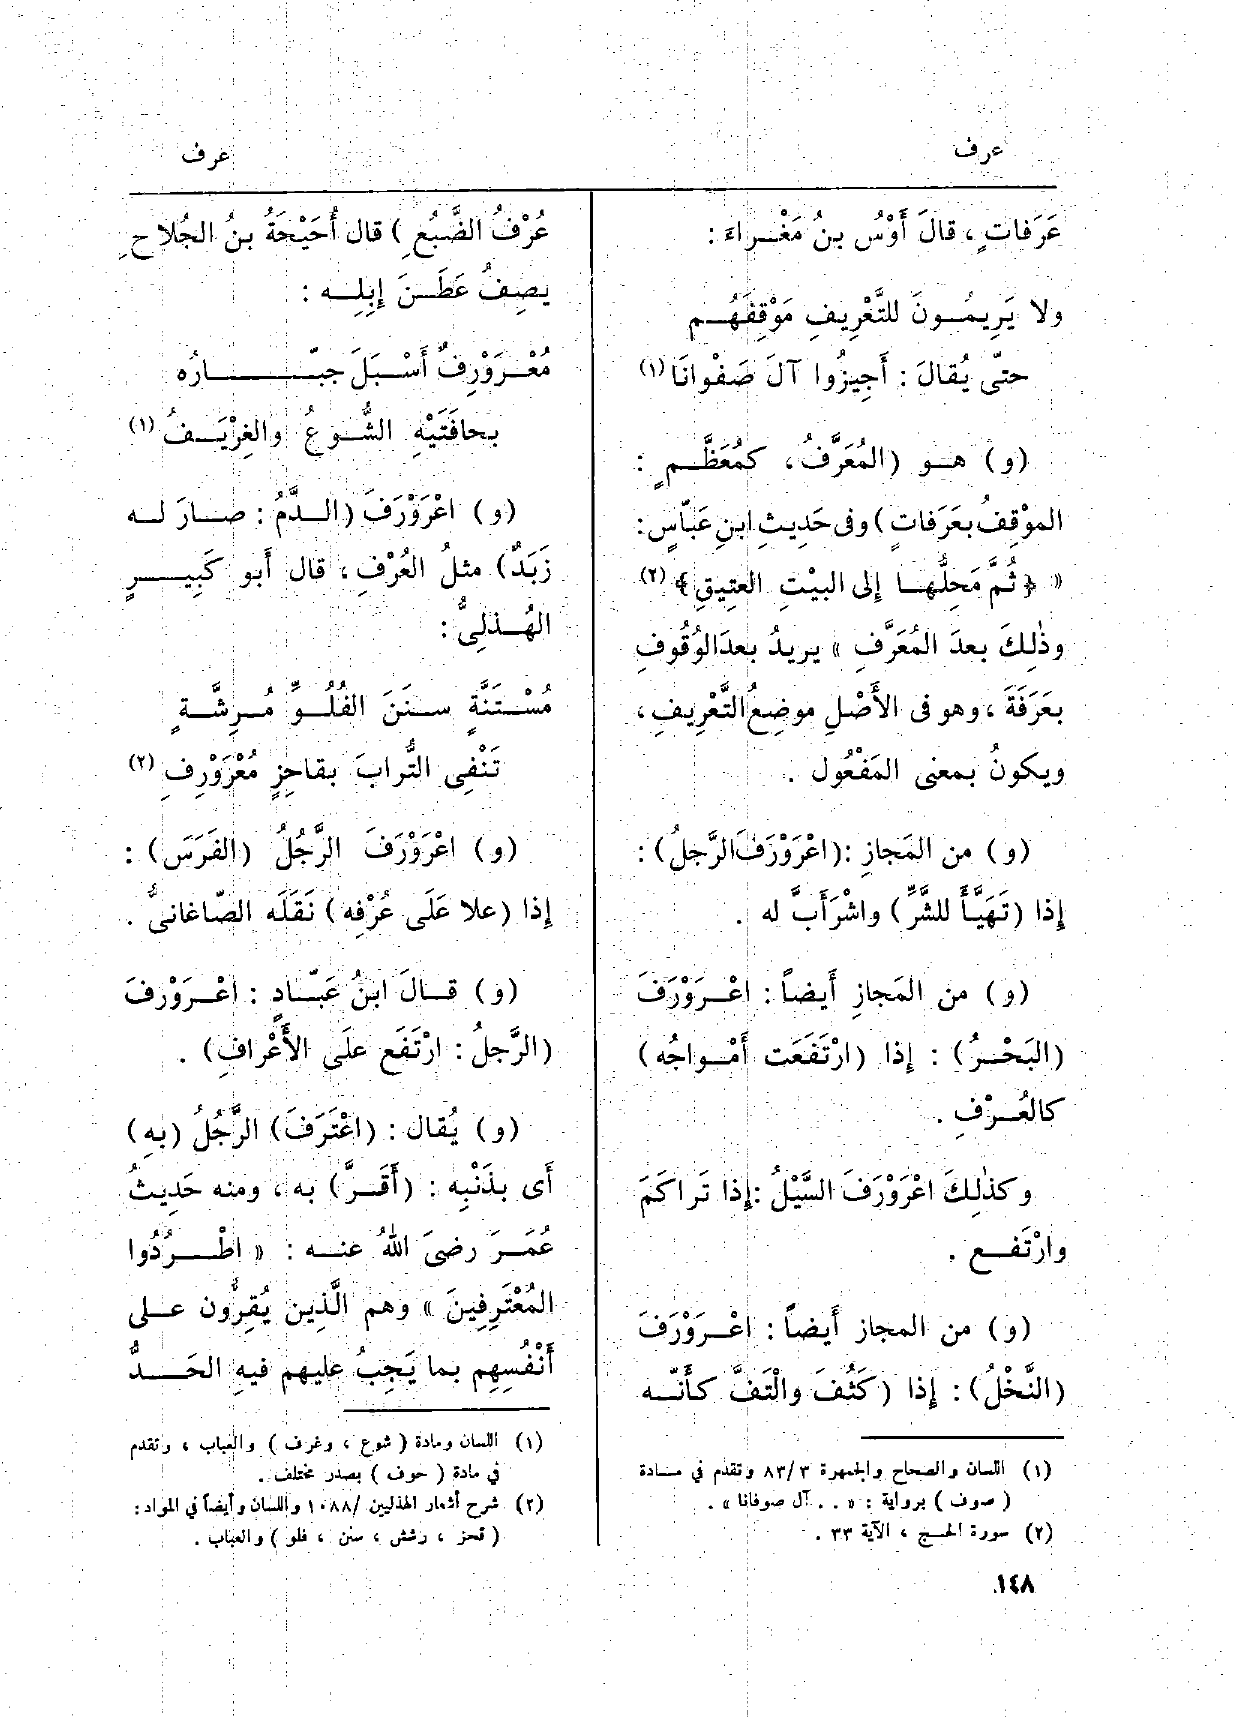 عرف
عرف
عَرَفاتٍ، قالَ أَوْسُ بنُ مَغْراءَ :
ولا يَرِيمُونَ للتَّعْرِيفِ مَوْقِفَهُم
حتّى يُقالَ : أَجِيزُوا آلَ صَفْوانَا (١)
(و) هو (المُعَرَّفُ، كمُعَظَّمٍ :
الموْقِفُ بعَرَفاتٍ) وفى حَدِيثِ ابنِ عَبّاسٍ :
« ﴿ثُمَّ مَحِلُّها إلى البيْتِ العتِيقِ﴾ (٢)
وذٰلِكَ بعدَ المُعَرَّفِ » يريدُ بعدَ الوُقُوفِ
بعَرَفَةَ ، وهو فى الأَصْلِ موضِعُ التَّعْرِيفِ ،
ويكونُ بمعنى المَفْعُول .
(و) من المَجازِ : (اعْرَوْرَفَ الرَّجلُ) :
إذا (تَهَيَّأَ للشَّرِّ) واشْرَأَبَّ له .
(و) من المَجازِ أَيضاً : اعْرَوْرَفَ
(البَحْرُ) : إذا (ارْتَفَعَت أَمْواجُه)
كالعُرْفِ .
وكذٰلِكَ اعْرَوْرَفَ السَّيْلُ : إذا تَراكَمَ
وارْتَفع .
(و) من المجاز أَيضاً : اعْرَوْرَفَ
(النَّخْلُ) : إذا (كَثُفَ والْتَفَّ كأَنّه
(١) اللسان والصحاح والجمهرة ٨٣/٣ وتقدم في مادة
( صوف ) برواية : « .. آل صوفانا » .
(٢) سورة الحج ، الآية ٣٣ .
عُرْفُ الضَّبُعِ ) قال أُحَيْحَةُ بنُ الجُلاحِ
يصِفُ عَطَنَ إبِلِه :
مُعْرَوْرِفٌ أَسْبَلَ جبّارُه
بحافَتَيْهِ الشُّوعُ والغِرْيَفُ (١)
(و) اعْرَوْرَفَ (الدَّمُ : صارَ له
زَبَدٌ) مثلُ العُرْفِ ، قال أَبو كَبِيرٍ
الهُذلِىُّ :
مُسْتَنَّةٍ سنَنَ الفُلُوِّ مُرِشَّةٍ
تَنْفِى التُّرابَ بقاحِزٍ مُعْرَوْرِفِ (٢)
(و) اعْرَوْرَفَ الرَّجُلُ (الفَرَسَ) :
إذا (علا عَلَى عُرْفِه) نَقَلَه الصّاغانىُّ .
(و) قالَ ابنُ عَبّادٍ : اعْرَوْرَفَ
(الرَّجلُ : ارْتَفَع علَى الأَعْرافِ) .
(و) يُقال : (اعْتَرَفَ) الرَّجُلُ (بِهِ)
أَى بذَنْبِه : (أَقَرَّ) به ، ومنه حَدِيثُ
عُمَرَ رضىَ اللهُ عنه : « اطْرُدُوا
المُعْتَرِفِينَ » وهم الَّذِين يُقِرُّون على
أَنْفُسِهِم بما يَجِبُ عليهم فيهِ الحَدُّ
(١) اللسان ومادة ( شوع ، وغرف ) والعباب ، وتقدم
في مادة ( حوف ) بصدر مختلف .
(٢) شرح أشعار الهذليين /١٠٨٨ واللسان وأيضاً في المواد :
( قحز ، رشش ، سنن ، فلو ) والعباب .
١٤٨